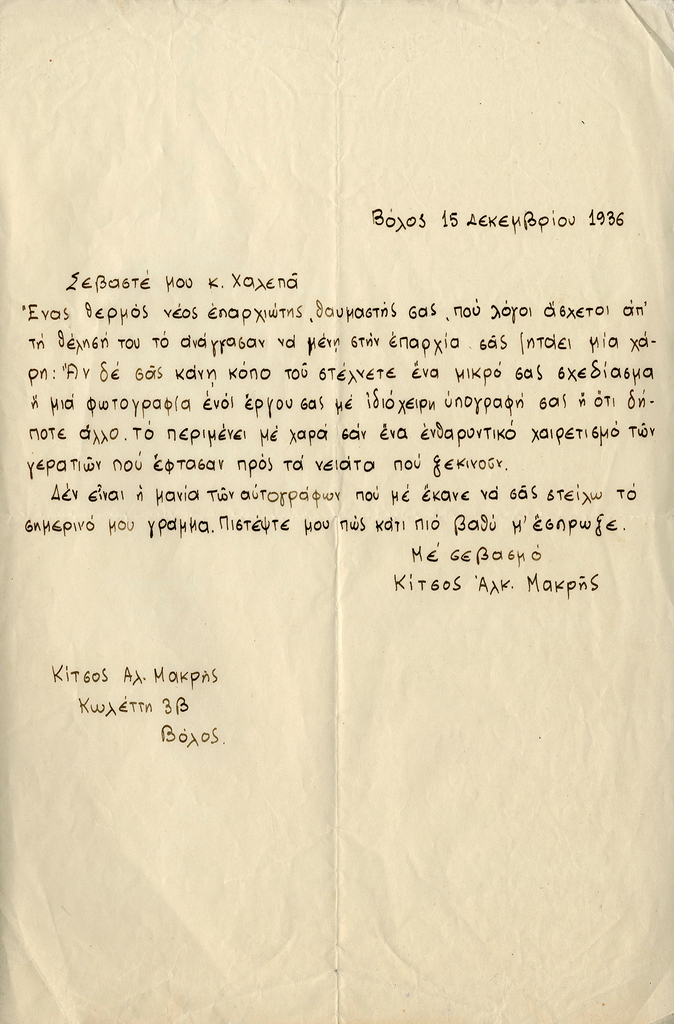 Βόλος 15 Δεκεμβρίου 1936
Σεβαστέ μου κ. Χαλεπᾶ
Ἕνας θερμός νέος ἐπαρχιώτης, θαυμαστής σας, πού λόγοι ἄσχετοι ἀπ'
τή θέλησή του τό ἀνάγγασαν νά μένῃ στήν ἐπαρχία σᾶς ζητάει μία χά-
ρη: Ἄν δέ σᾶς κάνῃ κόπο τοῦ στέλνετε ἕνα μικρό σας σχεδίασμα
ἤ μιά φωτογραφία ἑνός ἔργου σας μέ ἰδιόχειρη ὑπογραφή σας ἤ ὅτι δή-
ποτε ἄλλο. Τό περιμένει μέ χαρά σάν ἕνα ἐνθαρυντικό χαιρετισμό τῶν
γερατιῶν πού ἔφτασαν πρός τά νειάτα πού ξεκινοῦν.
Δέν εἶναι ἡ μανία τῶν αὐτογράφων πού μέ ἔκανε νά σᾶς στείλω τό
σημερινό μου γράμμα. Πιστέψτε μου πώς κάτι πιό βαθύ μ' ἔσπρωξε.
Μέ σεβασμό
Κίτσος Ἀλκ. Μακρῆς
Κίτσος Αλ. Μακρής
Κωλέττη 3β
Βόλος.